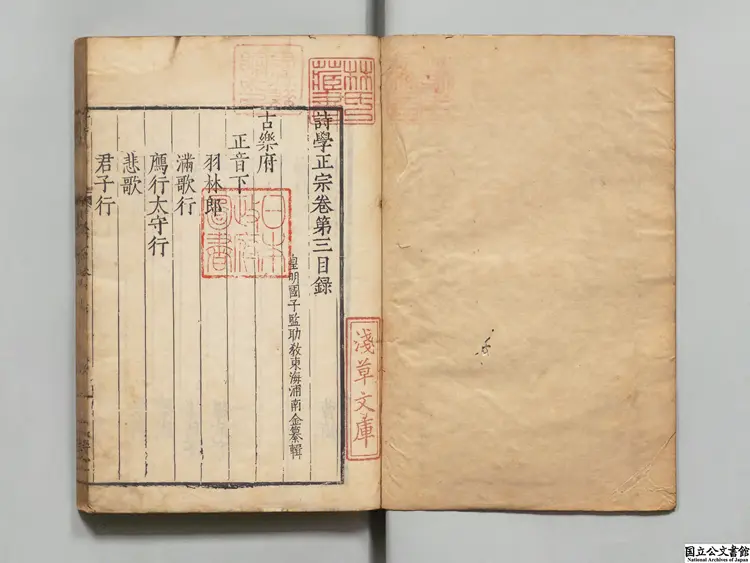 詩學正宗卷第三目錄
皇明國子監助敎東海浦南金纂輯
古樂府
正音下
羽林郎
滿歌行
鴈行太守行
悲歌
君子行
林氏藏書
日本政府圖書
淺草文庫
国立公文書館
National Archives of Japan